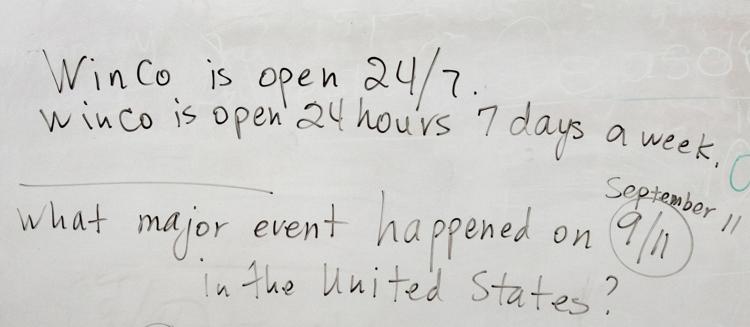 WinCo is open 24/7.
winco is open 24 hours 7 days a week.
September 11
what major event happened on 9/11
in the United States?